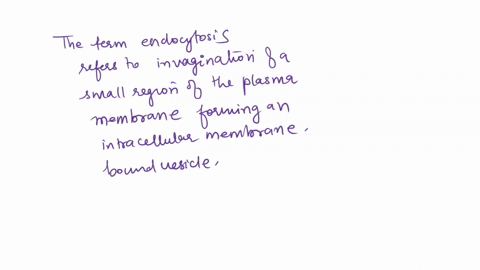 The term endocytosis
refers to invagination of a
small region of the plasma
membrane forming an
intracellular membrane.
bound vesicle.